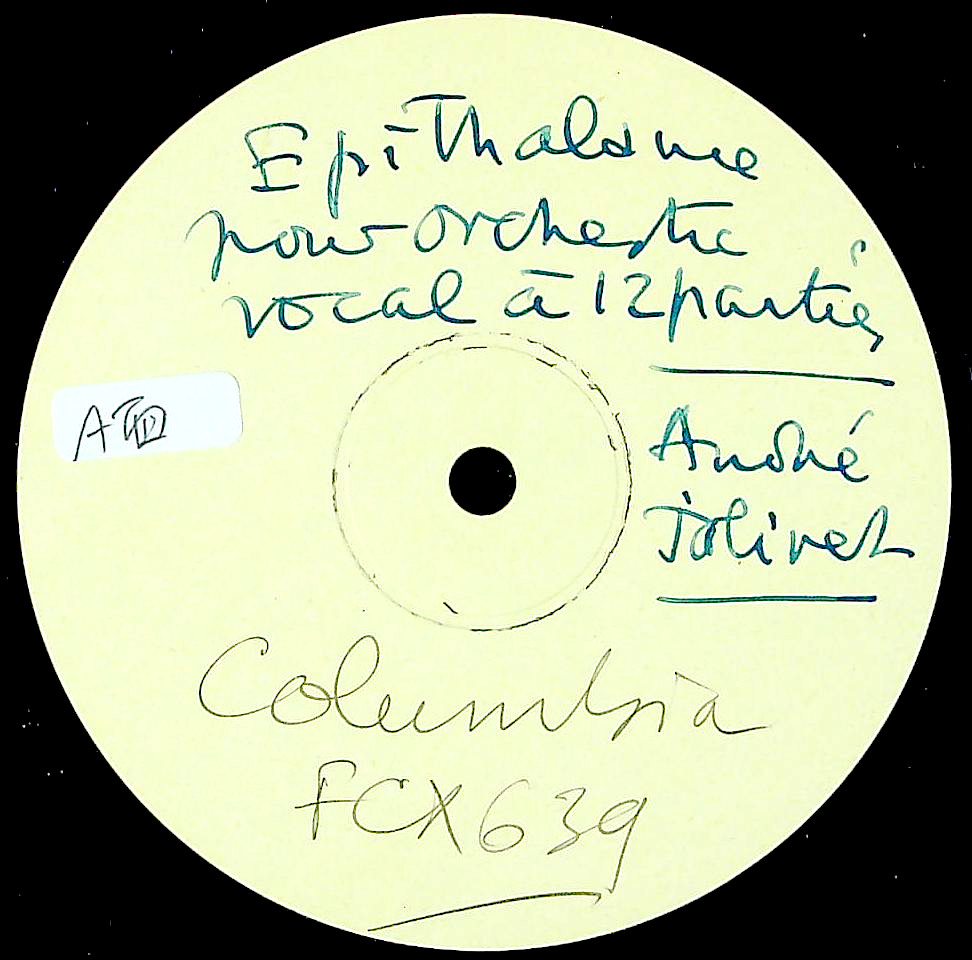 Epithalame
pour orchestre
vocal à 12 parties
André
Jolivet
Columbia
FCX639